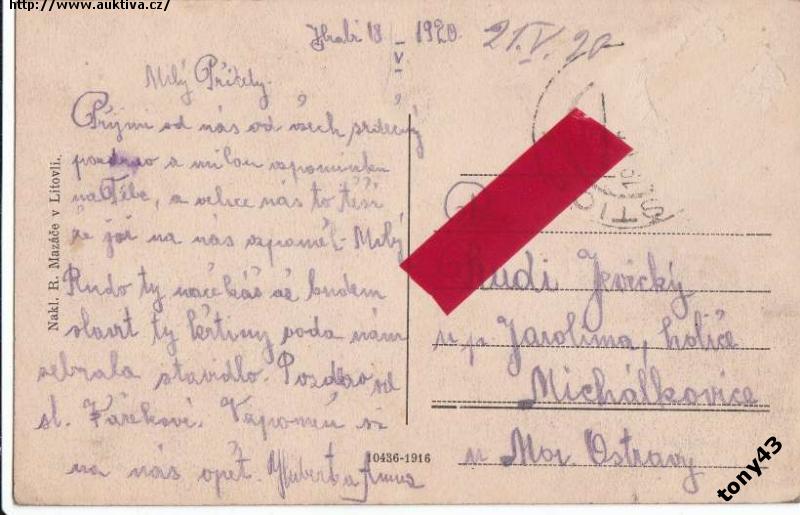 http://www.auktiva.cz/
18 - V - 1920. 21.V.20
Milý Příteli,
Přijmi od nás od všech srdečný
pozdrav a milou vzpomínku
na Tébe, a velice nás to těší
že jsi na nás vzpoměl - Milý
Rudo ty až budem
slavit ty voda nám
sebrala stavidlo. Pozdrav od
sl. Vzpomeň si
na nás opět. Hubert a
Nakl. R. Mazáče v Litovli.
10436-1916
Rudi Jevický
u p Jarolíma, holiče
Michálkovice
u Mor Ostravy
tony43